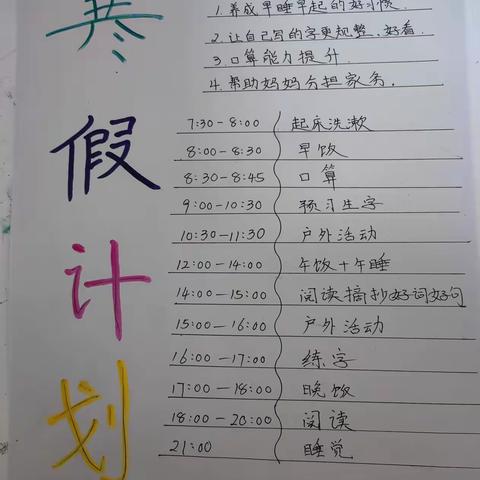 寒假计划
1. 养成早睡早起的好习惯.
2. 让自己写的字更规整,好看.
3. 口算能力提升
4. 帮助妈妈分担家务.
7:30-8:00 起床洗漱
8:00-8:30 早饭
8:30-8:45 口算
9:00-10:30 预习生字
10:30-11:30 户外活动
12:00-14:00 午饭+午睡
14:00-15:00 阅读摘抄好词好句
15:00-16:00 户外活动
16:00-17:00 练字
17:00-18:00 晚饭
18:00-20:00 阅读
21:00 睡觉